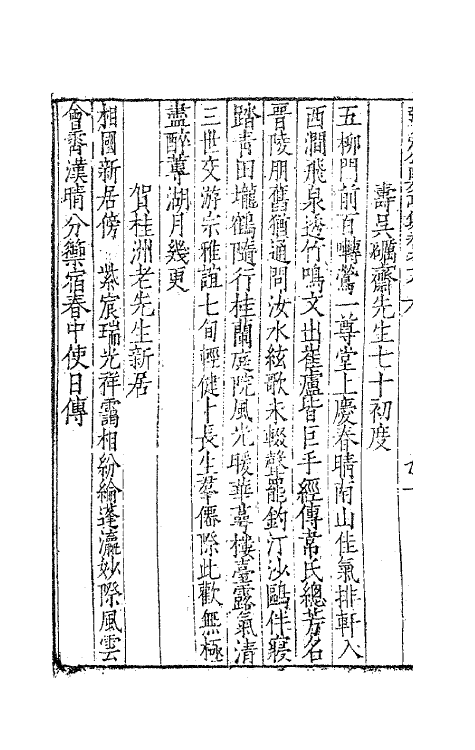 壽吳礪齋先生七十初度
五柳門前百轉鶯一尊堂上慶春晴南山佳氣排軒入
西澗飛泉透竹鳴文出崔盧皆巨手經傳韋氏總芳名
晉陵朋舊猶通問汝水絃歌未輟聲罷釣汀沙鷗伴寢
踏青田壠鶴隨行桂蘭庭院風光暖華萼樓臺露氣清
三世交游宗雅誼七旬輕健卜長生羣僊際此歡無極
盡醉蓴湖月幾更
賀桂洲老先生新居
相國新居傍紫宸瑞光祥靄相紛綸蓬瀛妙際風雲
會霄漢晴分藥宿春中使日傳